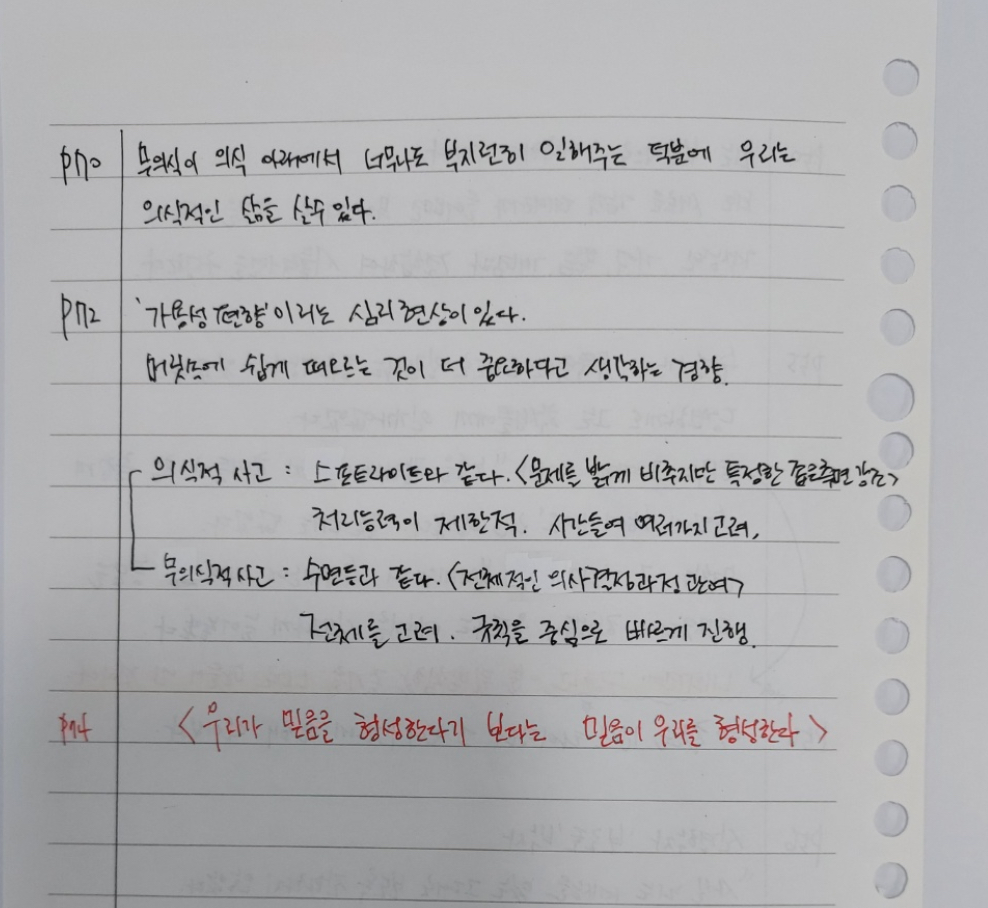 p170 무의식이 의식 아래에서 너무나도 부지런히 일해주는 덕분에 우리는
의식적인 삶을 살수 있다.
p172 '가용성 편향'이라는 심리현상이 있다.
머릿속에 쉽게 떠오르는 것이 더 중요하다고 생각하는 경향.
의식적 사고 : 스포트라이트와 같다. <문제를 밝게 비추지만 특정한 측면 강조>
처리능력이 제한적. 시간들여 여러가지 고려.
무의식적사고 : 수면등과 같다. <전체적인 의사결정과정 관여>
전체를 고려. 규칙을 중심으로 빠르게 진행.
<우리가 믿음을 형성한다기 보다는 믿음이 우리를 형성한다>